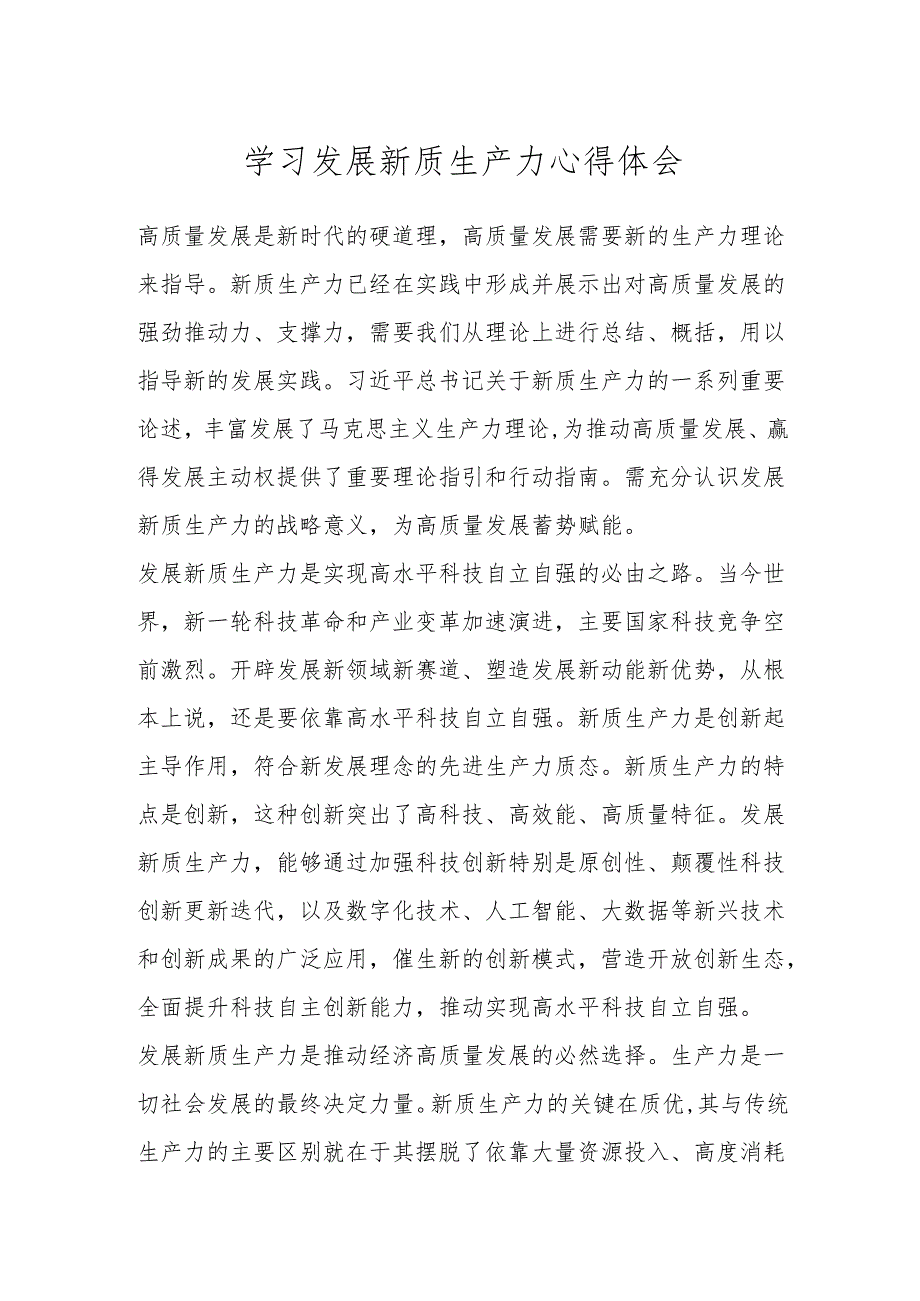 学习发展新质生产力心得体会
高质量发展是新时代的硬道理，高质量发展需要新的生产力理论
来指导。新质生产力已经在实践中形成并展示出对高质量发展的
强劲推动力、支撑力，需要我们从理论上进行总结、概括，用以
指导新的发展实践。习近平总书记关于新质生产力的一系列重要
论述，丰富发展了马克思主义生产力理论,为推动高质量发展、赢
得发展主动权提供了重要理论指引和行动指南。需充分认识发展
新质生产力的战略意义，为高质量发展蓄势赋能。
发展新质生产力是实现高水平科技自立自强的必由之路。当今世
界，新一轮科技革命和产业变革加速演进，主要国家科技竞争空
前激烈。开辟发展新领域新赛道、塑造发展新动能新优势，从根
本上说，还是要依靠高水平科技自立自强。新质生产力是创新起
主导作用，符合新发展理念的先进生产力质态。新质生产力的特
点是创新，这种创新突出了高科技、高效能、高质量特征。发展
新质生产力，能够通过加强科技创新特别是原创性、颠覆性科技
创新更新迭代，以及数字化技术、人工智能、大数据等新兴技术
和创新成果的广泛应用，催生新的创新模式，营造开放创新生态，
全面提升科技自主创新能力，推动实现高水平科技自立自强。
发展新质生产力是推动经济高质量发展的必然选择。生产力是一
切社会发展的最终决定力量。新质生产力的关键在质优,其与传统
生产力的主要区别就在于其摆脱了依靠大量资源投入、高度消耗